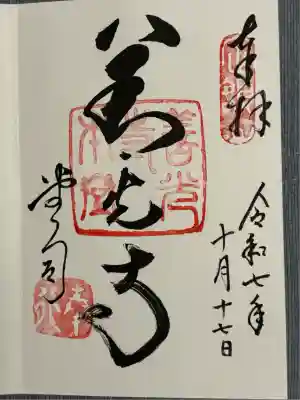 奉拝
令和七年
十月十七日
善光寺
堂司